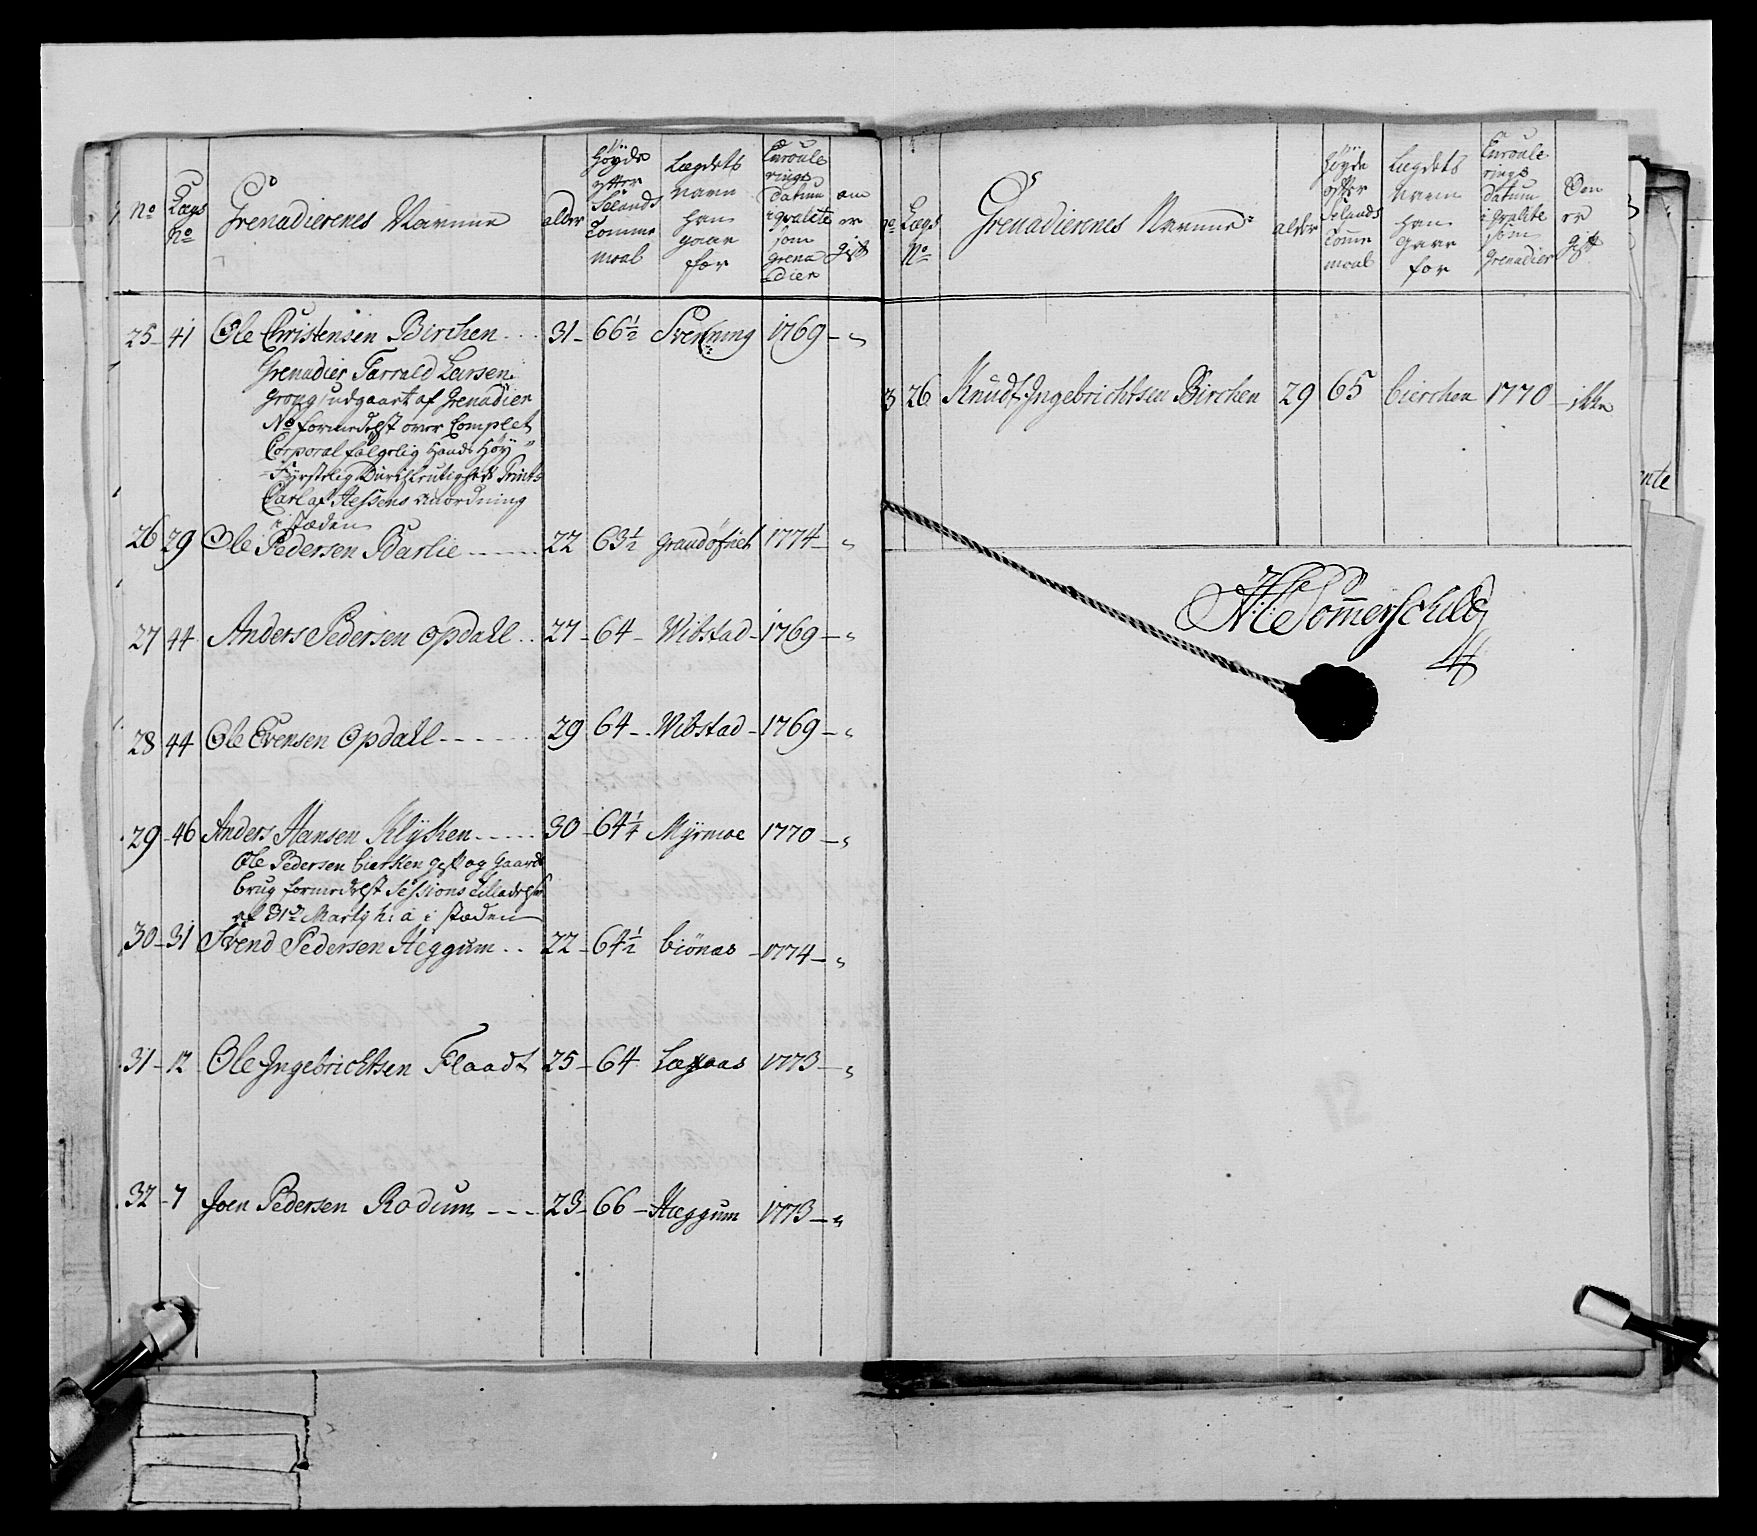 No Lægs No Grenadierenes Navnne alder Höyde efter Sælands Tomme maal Lægdets navn han gaar for Enroule rings datum i qvalite som grena dier om er gift
25 41 Ole Christensen Birchen 31 66½ Svenning 1769 "
Grenadier Tarrald Larsen
Grong udgaart af Grenadier
No formedelst over Complet
Corporal følgelig Hands Höy
Fyrstelig Durchleutigheds Printz
Carl af Hessens anordning
i stæden
26 29 Ole Pedersen Barlie 22 63½ 1774 "
27 44 Anders Pedersen Opdall 27 64 Vibstad 1769 "
28 44 Ole Evensen Opdall 29 64 Vibstad 1769 "
29 46 Anders Hansen Klÿken 30 64¼ Mÿrmoe 1770 "
Ole Pedersen bierken gift og Gaard
brug formedelst Sessions tilladelse
af 31te Martÿ h: a: i stæden
30 31 Svend Pedersen Heggum 22 64½ biönas 1774 "
31 12 Ole Ingebrichtsen Flaadt 25 64 1773 "
32 7 Joen Pedersen Rodum 23 66 Hæggum 1773 "
No Lægs No Grenadierenes Navnne alder Höyde efter Sælands Tomme maal Lægdets Navn han gaar for Enroule rings datum i qvalite som grenadier Om er gift
3 26 Knudt Ingebrichtsen Birchen 29 65 bierchen 1770 ikke
Sommerschild